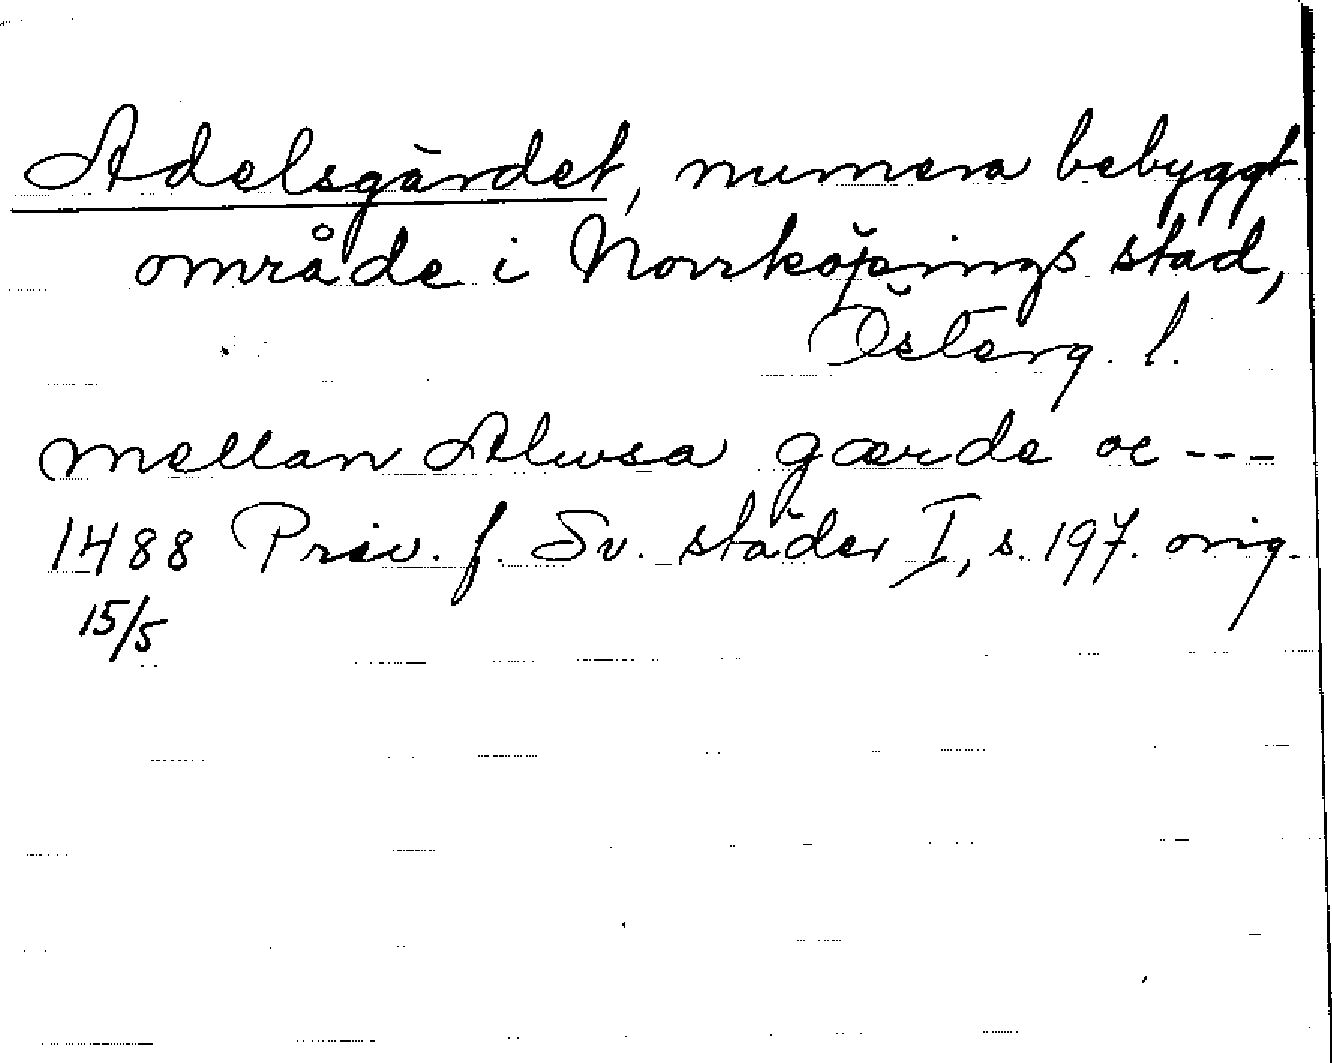 Adelsgärdet, numera bebyggt
område i Norrköpings stad,
Österg. l.
mellan Alwsa gærde oc ---
1488 Priv. f. Sv. städer I, s. 197. orig.
15/5